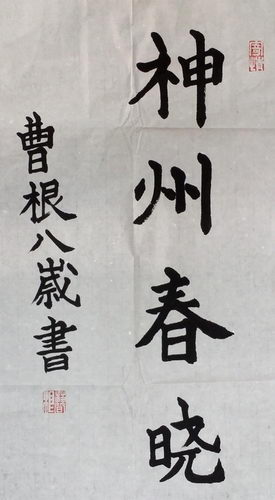 神州春晓
曹根八歲書